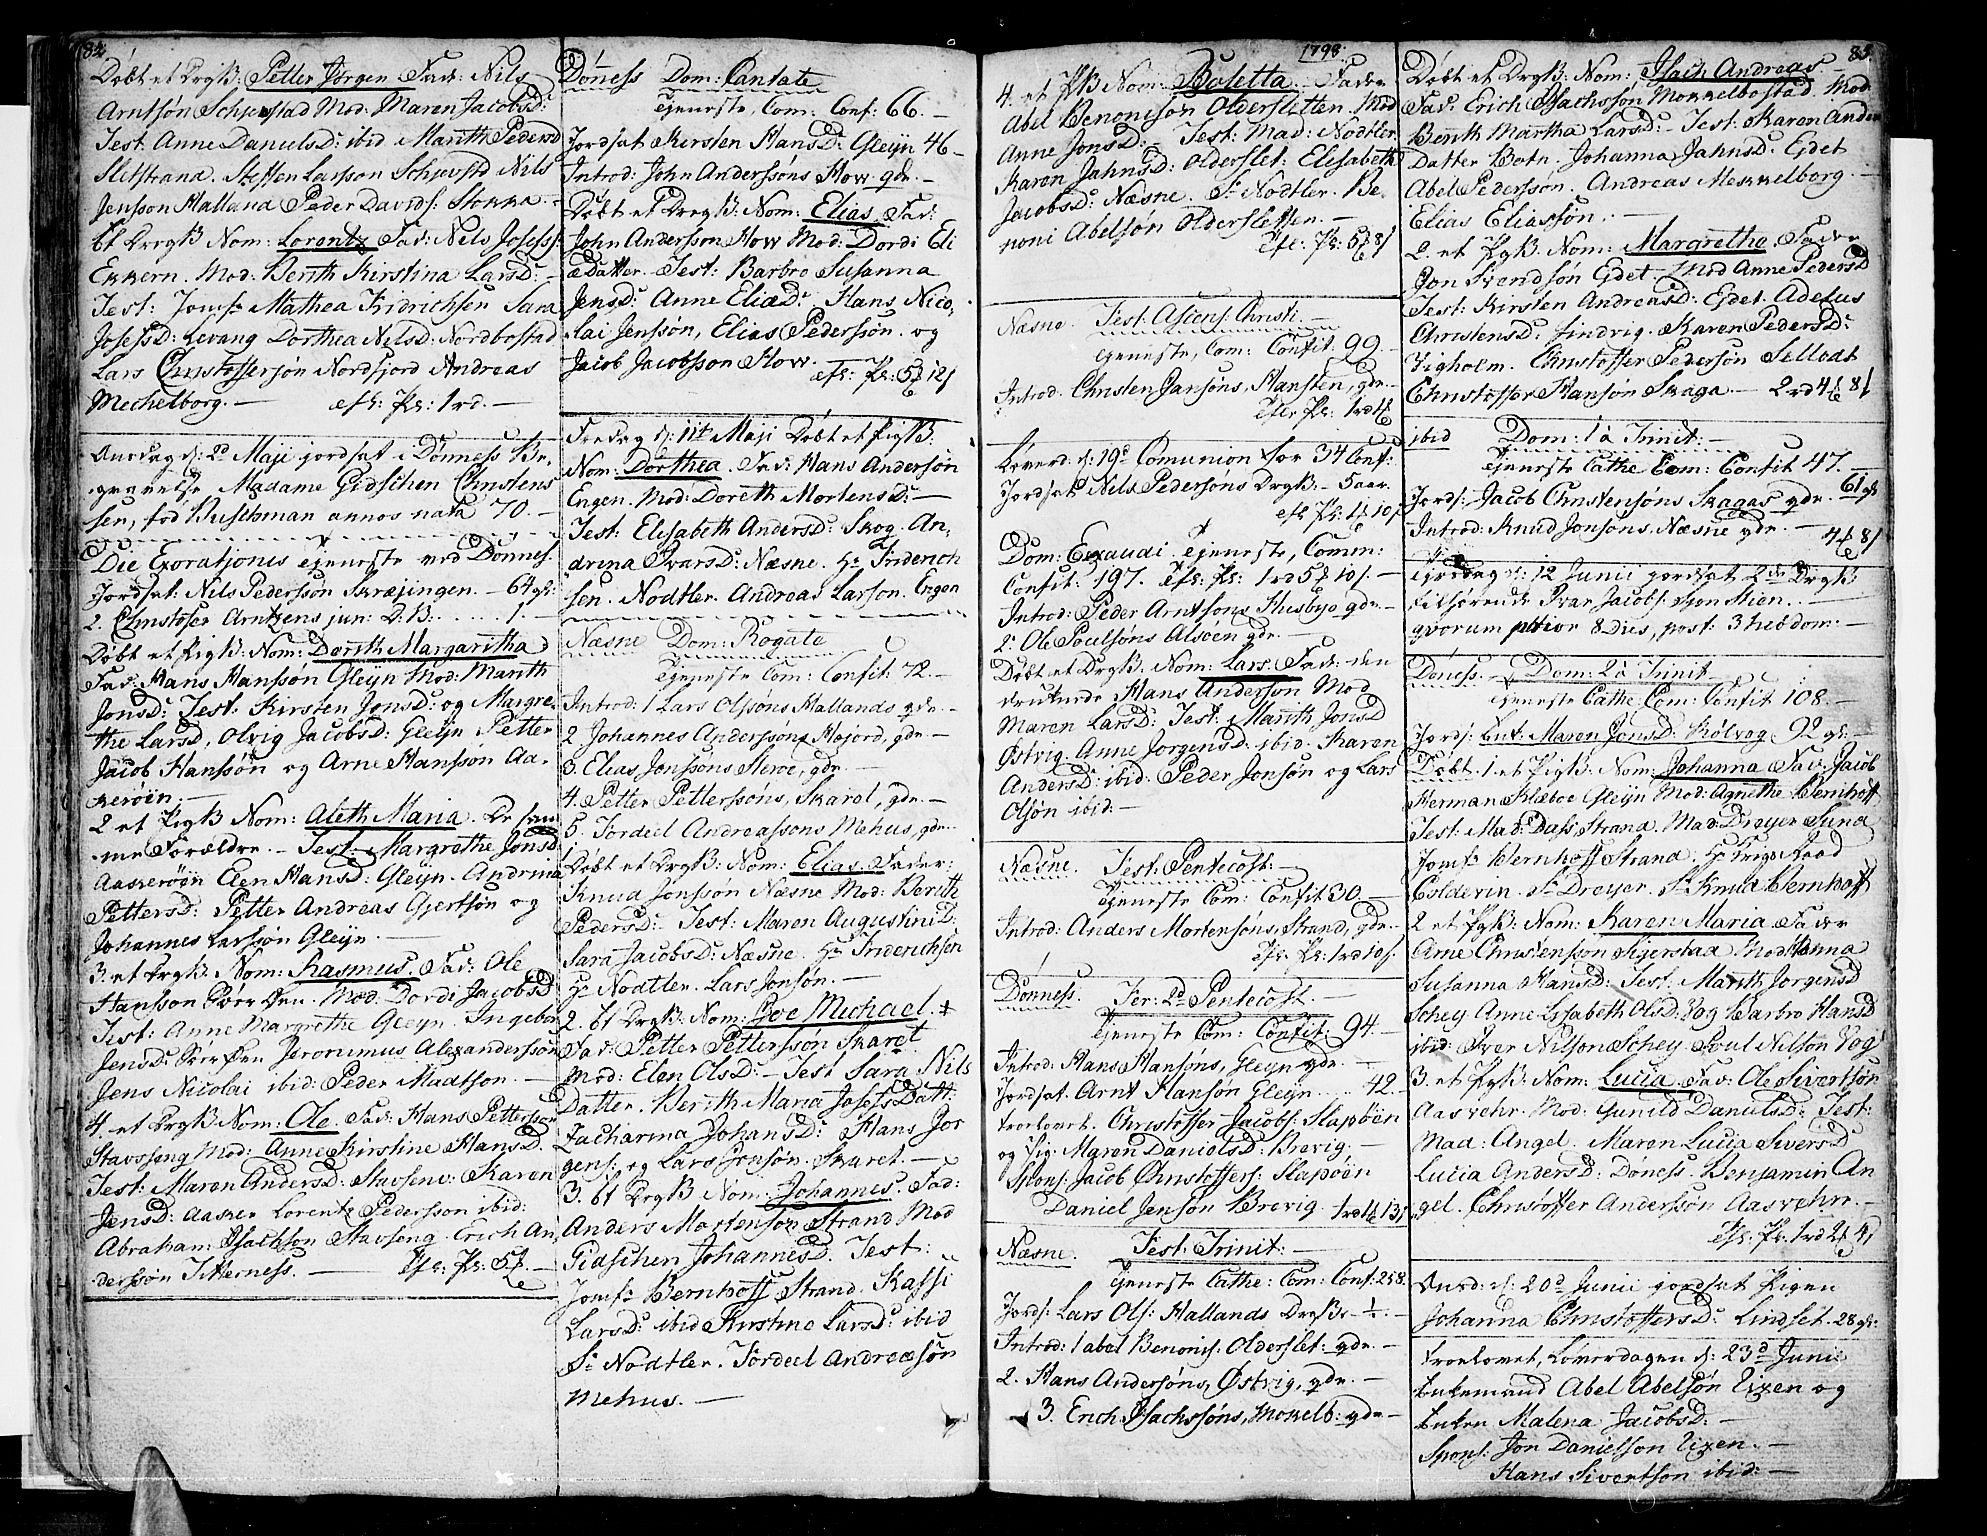 84
Døbt et Drgß: Petter Jørgen Fad: Nils
Arntsøn Mod: Maren Jacobsd:
Test: Anne Danielsd: ibid Marith Pedersd
Sletstrana. Steffen Larsson Nils
Jensson Halland Peder Davids: Stokka
et Drgß Nom: Lorentz Fad: Nils Josefs:
Ekkern. Mod: Berith Kirstina Larsd:
Test: Jomf: Mathea Fridrichsen Sara
Josefsd: Levang Dorthea Nilsd: Nordbostad
Lars Christoffersøn Nordfjord Andreas
Mechelborg. — efr: Pr: 1 rd. —
Onsdag d: 2d Maji jordsat i Dønness Be-
gravelse Madame Gidschen Christens
sen, fød Buschman annos nata 70. —
Die Exorationis tjeneste ved Dønness.
Jordsat: Nils Pedersson Skræjingen. — 64 gl:
2. Christofer Arntzens jun: D:B: ..... 1. —
Døbt et Pigeß: Nom: Dorith Margaritha
Fad: Hans Hanssøn Gleijn Mod: Marith
Jonsd: Test: Kirsten Jonsd: og Margre-
the Larsd, Olvig Jacobsd: Gleijn Petter
Jacob Hanssøn og Arne Hanssøn Aa-
kerøin —
2 et Pigß Nom: Aleth Maria. De sam
me Forældre. — Test: Margrethe Jonsd
Aaskerøin Elen Hansd: Gleijn. Andrina
Pettersd: Petter Andreas Gjertsøn og
Johannes Larssøn Gleijn. —
3. et Drgß Nom: Rasmus. Fad: Ole
Hansson Mod: Dordi Jacobsd
Test: Anne Margrethe Gleijn. Ingebor
Jensd: Jeronimus Alexandersson
Jens Nicolai ibid: Peder Madtson. —
4. et Drgß Nom: Ole. Fad: Hans Petterson
Stavsseng Mod: Anne Kirstine Hansd.
Test: Maren Andersd: Stavseng: Karen
Jensd: Aasker Lorentz Pedersson ibid:
Abraham Isachson Stavseng. Erich An
dersson Titterness. — Efr: Pr: 5
Dønness Dom: Cantate
Tjeneste, Com: Conf: 66. —
Jordsat Kirsten Hansd: Gleijn 46 —
Introd: John Anderssøns How gdr. —
Døbt et Drgß: Nom: Elias. Fad:
John Andersson How Mod: Dordi Eli
æ Datter. Test: Barbro Susanna
Jensd: Anne Eliæd: Hans Nico-
lai Jenssøn, Elias Pederssøn. og
Jacob Jacobsson How. efr: Pr: 5 12/
Fredag d: 11t Maji Døbt et Pigß:
Nom: Dorthea. Fad: Hans Andersøn
Engen. Mod: Doreth Mortensd: —
Test: Elisabeth Andersd: Skog. An-
drina Ivarsd: Næsne. Hr Friderich
sen. Nodtler. Andreas Larson. Engen
Næsne Dom: Rogate
Tjeneste Com: Confit: 72. —
Introd: 1 Lars Olssøns Hallands gdr. —
2 Johannes Anderssøns Højord, gdr —
3. Elias Jonssons gdr —
4. Petter Petterssøns, Skarel, gdr. —
5. Tordeel Andreassons Mehus, gdr.
Døbt et Drgß: Nom: Elias. Fader:
Knud Jonsson Næsne Mod: Berith
Pedersd: Test: Maren Augustini D:
Sara Jacobsd: Næsne. Hr Friderichsen
Hr Nodtler. Lars Jonsøn. —
2. et Drgß: Nom: Michael. ‡
Fad: Petter Petterssøn Skaret
Mod: Elen Olsd: — Test Sara Nils
Datter. Berith Maria Josefs Datt:
Zacharina Johansd: Hans Jør
gens: og Lars Jonsøn. Skaret. —
3. et Drgß Nom: Johannes. Fad:
Anders Mortensøn Strand Mod
Gidschen Johannesd. Test:
Jomfr Bernhoff Strand. Kassi
Larsd: ibid Kirstine Larsd: ibid
Sr Nodtler. Tordeel Andreæsøn
Mehus. —
1798.
4. et Pß Nom: Boletta. Fader
Abel Benonisøn Olderslætten Mod
Anne Jonsd: Test: Mad: Nodtler
Karen Jahnsd: Olderslet: Elisabeth
Jacobsd: Næsne. Sr Nodtler. Be-
noni Abelsøn Oldersletten. —
Efr: Pr: 5 8/
Næsne. Fest: Asiens: Christi. —
Tjeneste, Com: Confit: 99 —
Introd: Christen Jansøns, Hansten, gdr —
Efr Pr: 1 rd 1
Løverd: d: 19d Comunion for 34 Conf:
Jordsat Nils Pedersons Drgß: — 5 aar.
efr Pr: 1 10/
Dom: Exaudi tjeneste, Comm:
Confit: 197. Efr: Pr: 1 rd 5 10/. —
Introd: Peder Arntsøns Husbye gdr —
2. Ole Poulsøns Alsøen gdr. —
Døbt et Drgß: Nom: Lars. Fad: den
druknede Hans Anderson Mod
Maren Larsd: Test: Marith Jonsd
Østvig. Anne Jørgensd: ibid: Karen
Andersd: ibid: Peder Jonsøn og Lars
Olsøn ibid: —
Næsne. Fest: Pentecost: —
Tjeneste Com: Confit 30. —
Introd: Anders Mortensøns, Strand, gdr —
Efr: Pr: 1 rd 10/
Dønness. Fer: 2d Pentecost. —
Tjeneste Com: Confit: 94. —
Introd: Hans Hansøns, Gleijn gdr. —
Jordsat Arnt Hansøn Gleijn ..... 42.
troelovet. Christoffer Jacobs: Slapøen
og Pig: Maren Danielsd: Brevig. —
Spons: Jacob Christoffers: Slapøen
Daniel Jensøn Brevig. 1 rd 1 13/
Næsne. Fest: Trinit: —
Tjeneste Cathe: Com: Conf: 258.
Jords: Lars Ols: Hallands Drgß — ½: —
Introd: 1 abel Benonis: Olderslet: gdr. —
2. Hans Andersøns, Østvig, gdr. —
3. Erich Isachssøns, Mokelb: gdr —
85
Døbt et Drgß: Nom: Isach Andreas
Fad: Erich Isachssøn Mokkelbostad Mod
Berith Martha Larsd: — Test: Karen Anders
Datter Botn. Johanna Jahnsd: Ejdet
Abel Pedersson. Andreas Mekkelborg. —
Elias Eliassøn. —
2. et Pgß: Nom: Margrethe. Fader
Jon Svendsøn Ejdet Mod Anne Pedersd
Test: Kirsten Andreasd: Ejdet. Adelus
Christensd: Findvig. Karen Pedersd:
Vigholm. Christoffer Pedersøn Sellodt
Christoffer Hansøn Skaga — 2 rd 4 8/
ibid Dom: 1 a Trinit: —
Tjeneste Cathe Com: Confit 47. —
Jords: Jacob Christensøns Skagas gdr. 61 gl
Introd: Knud Jonsons Næsne gdr. —
4 8/
Tirsdag d: 12 Junii jordsat 2de Drgß
tilhørende Ivar Jacobs: Stien. —
qvorum prior 8 Dies, post: 3 hebdom: —
Døness. Dom: 2 a Trinit —
Tjeneste Cathe Com: Confit 108. —
Jords: Enk: Maren Jonsd: Kølvog 92 gl. —
Døbt. 1 et Pigß. Nom: Johanna Fad: Jacob
Herman Klæboe Gleijn Mod: Agnethe Bernhoft
Test: Mad: Dass Strand. Mad: Dreyer Sund
Jomfr Bernhoff Strand. Hr Krigs Raad
Colderin. Sr Dreyer. Sr Knud Bernhoff
2 et Pgß: Nom: Karen Maria Fader
Arne Christensson Tigerstad Mod Hanna
Susanna Hansd: Test: Marith Jørgensd
Schey Anne Lisabeth Olsd: Vog Barbro Hansd
ibid: Iver Nilson Schey Poul Nilson Vog
3. et Pgß: Nom: Lucia. Fad: Ole Sivertsøn
Aasvehr. Mod: Gunild Danielsd: Test:
Mad: Angel. Maren Lucia Siversd
Lucia Andersd: Døness. Benjamin An
gel. Christoffer Anderssøn Aasvehr. —
Efr: Pr: 1 rd 2 4/
Onsd: d: 20d Junii jordsat Pigen
Johanna Christoffersd: Lindset. 28 gl:
Troelovet, Løverdagen d: 23d Junii
Enkemand Abel Abelsøn Tixen og
Enken Malena Jacobsd: —
Spons: Jon Danielson Tixen. —
Hans Sivertson ibid: —